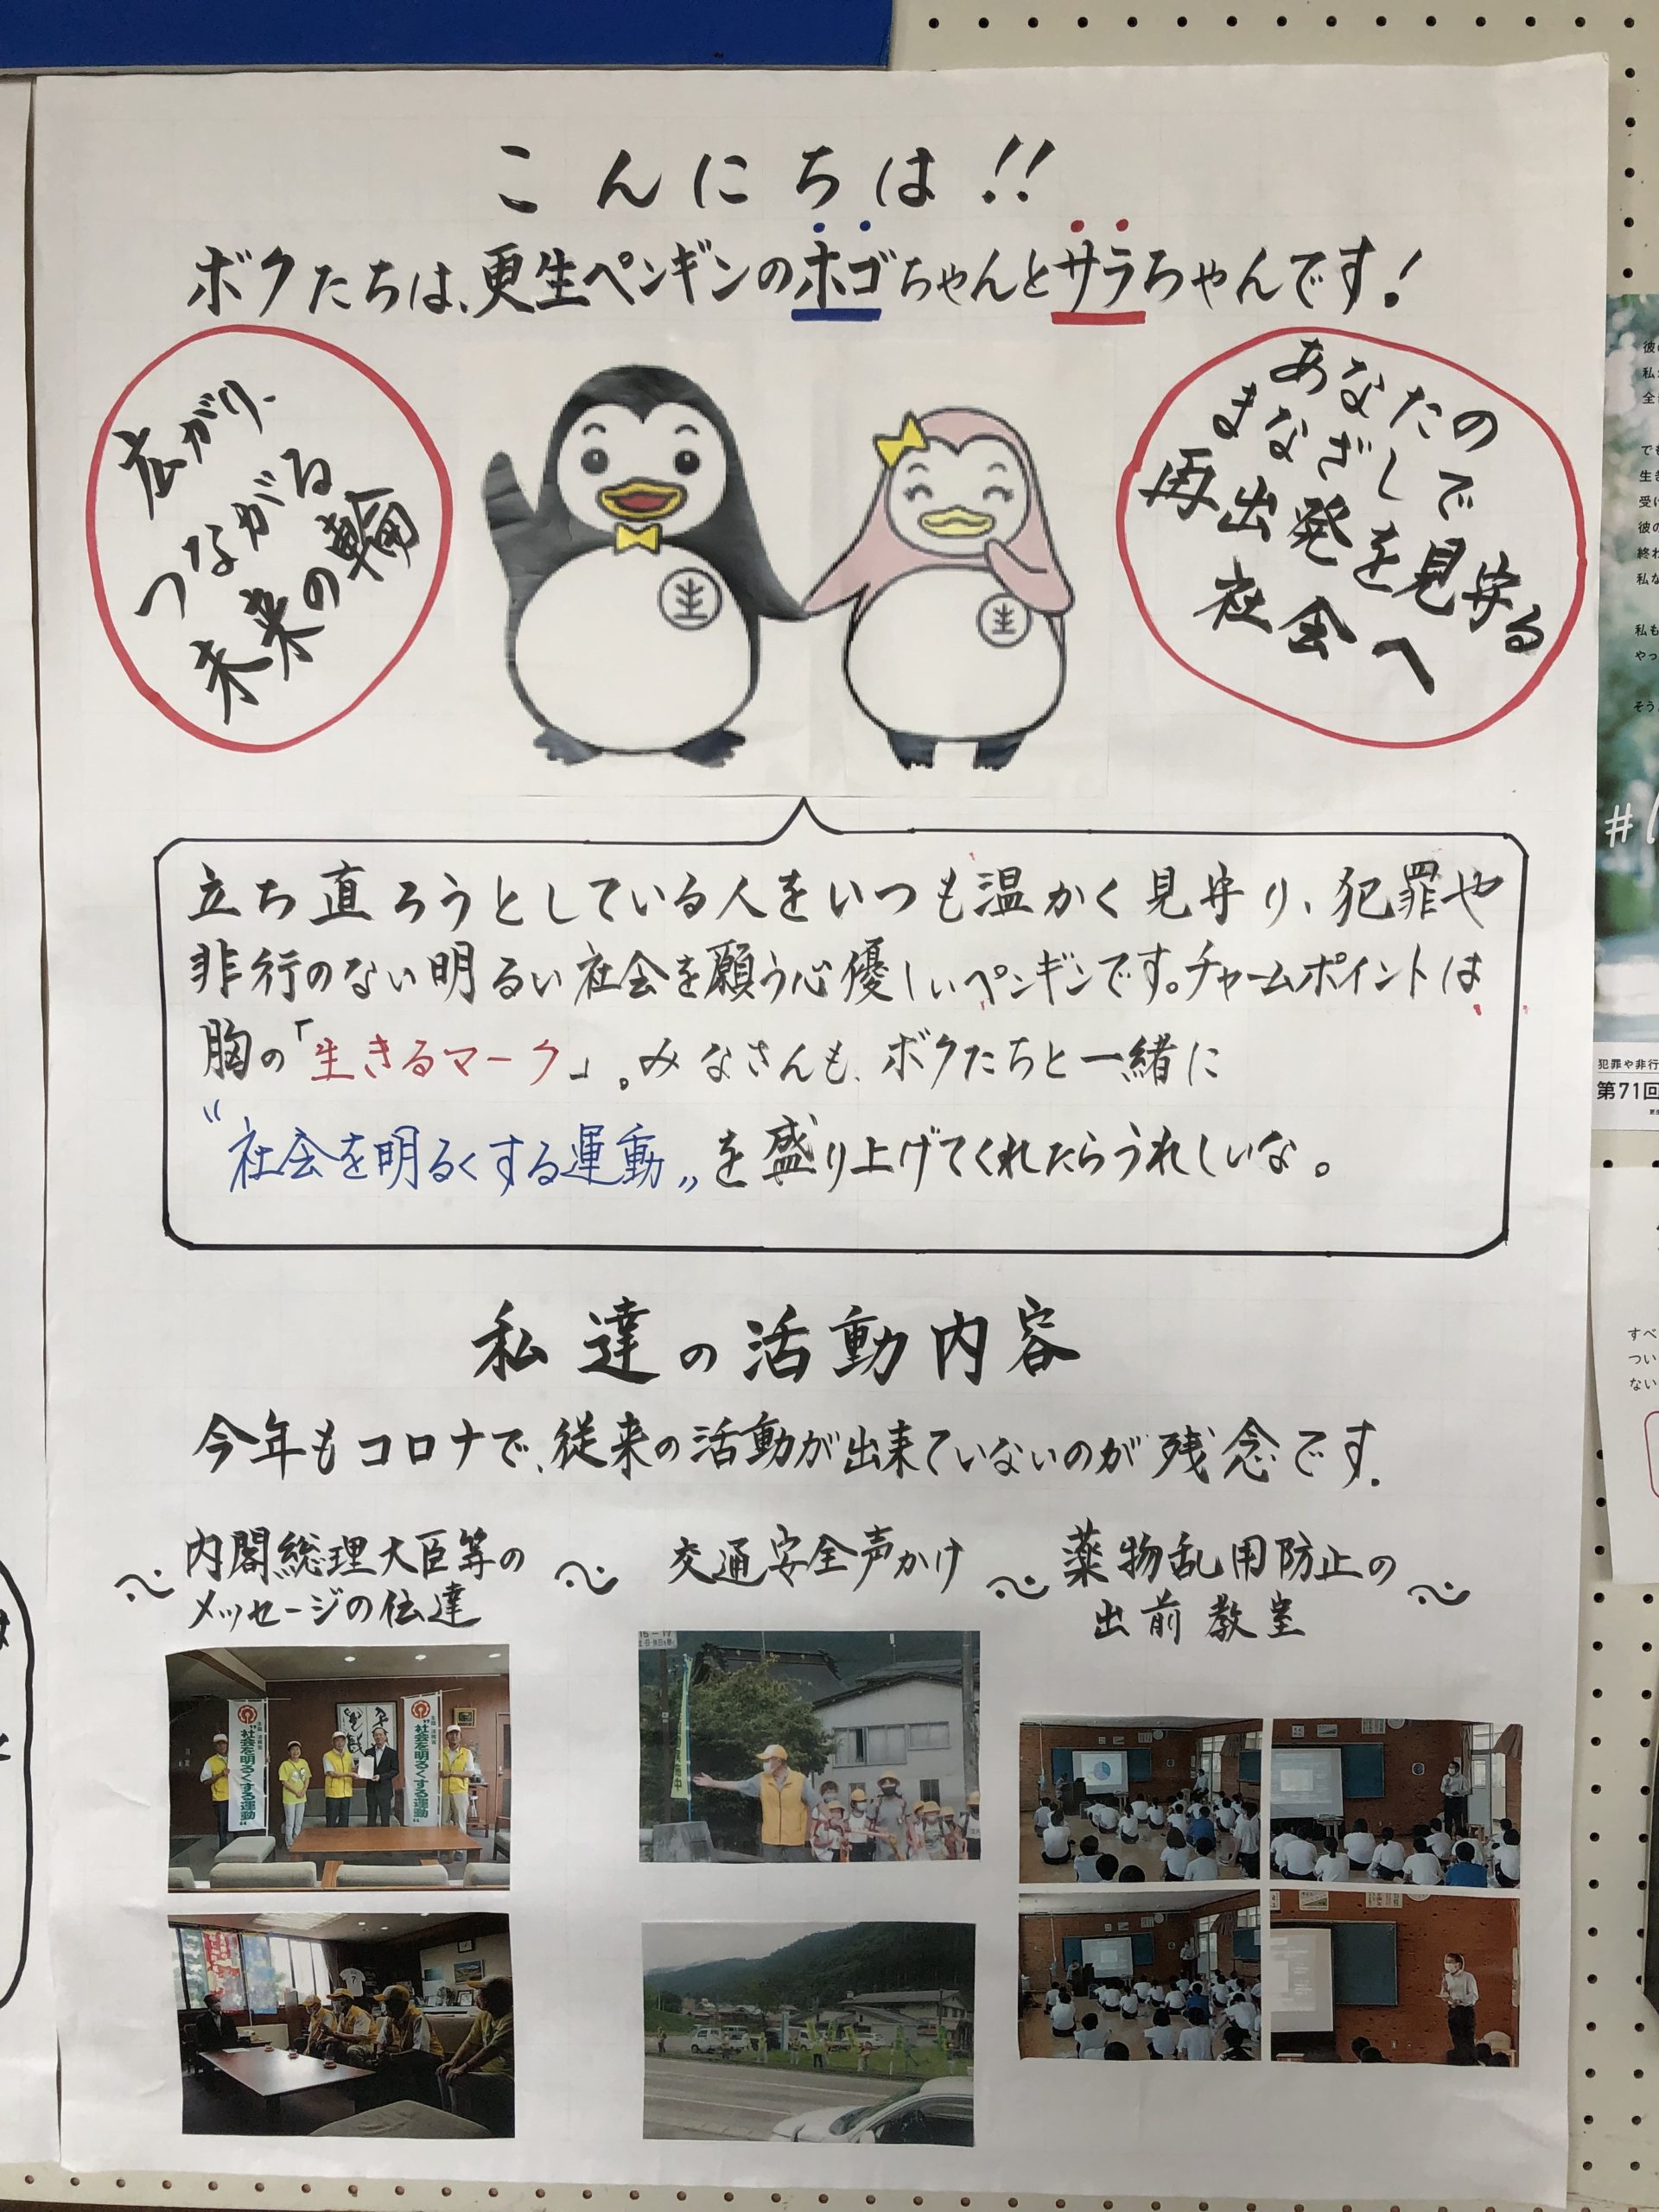 こんにちは!!
ボクたちは、更生ペンギンのホゴちゃんとサラちゃんです!
広がり、
つながる
未来の輪
あなたの
まなざしで
再出発を見守る
社会へ
生
生
立ち直ろうとしている人をいつも温かく見守り、犯罪や
非行のない明るい社会を願う心優しいペンギンです。チャームポイントは
胸の「生きるマーク」。みなさんも、ボクたちと一緒に
"社会を明るくする運動"を盛り上げてくれたらうれしいな。
私達の活動内容
今年もコロナで、従来の活動が出来ていないのが残念です.
内閣総理大臣等の
メッセージの伝達
交通安全声かけ
薬物乱用防止の
出前教室
"社会を明るくする運動"
"社会を明るくする運動"
犯罪や非行
第71回